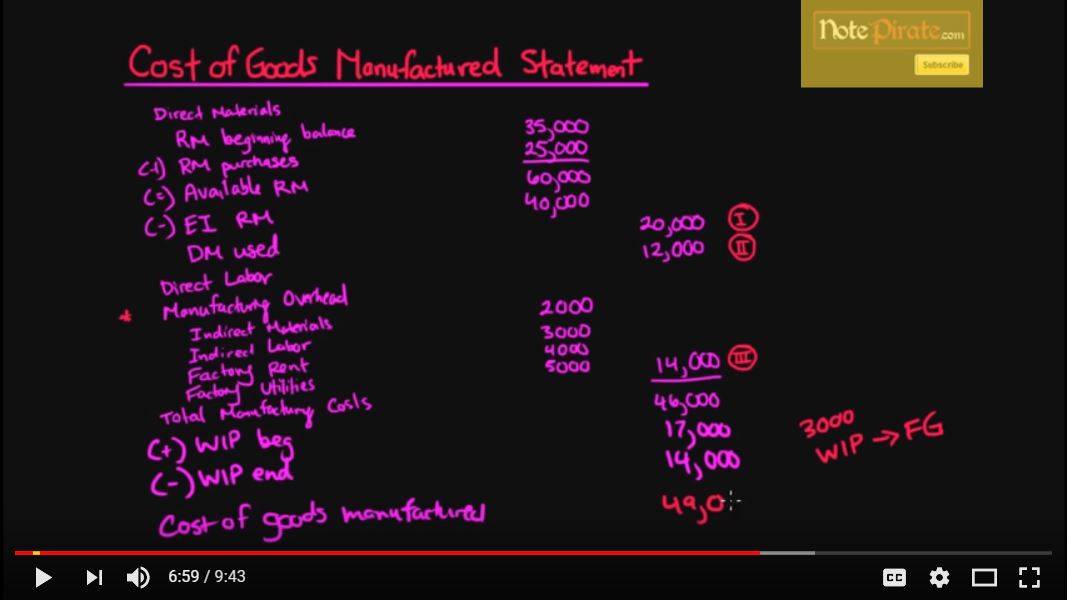 NotePirate.com
Subscribe
Cost of Goods Manufactured Statement
Direct Materials
RM beginning balance 35,000
(+) RM purchases 25,000
(=) Available RM 60,000
(-) EI RM 40,000
DM used 20,000 I
Direct Labor 12,000 II
* Manufacturing Overhead
Indirect Materials 2000
Indirect Labor 3000
Factory Rent 4000
Factory Utilities 5000
14,000 III
Total Manufacturing Costs 46,000
(+) WIP beg 17,000
(-) WIP end 14,000
3000
WIP → FG
Cost of goods manufactured 49,0
6:59 / 9:43
CC